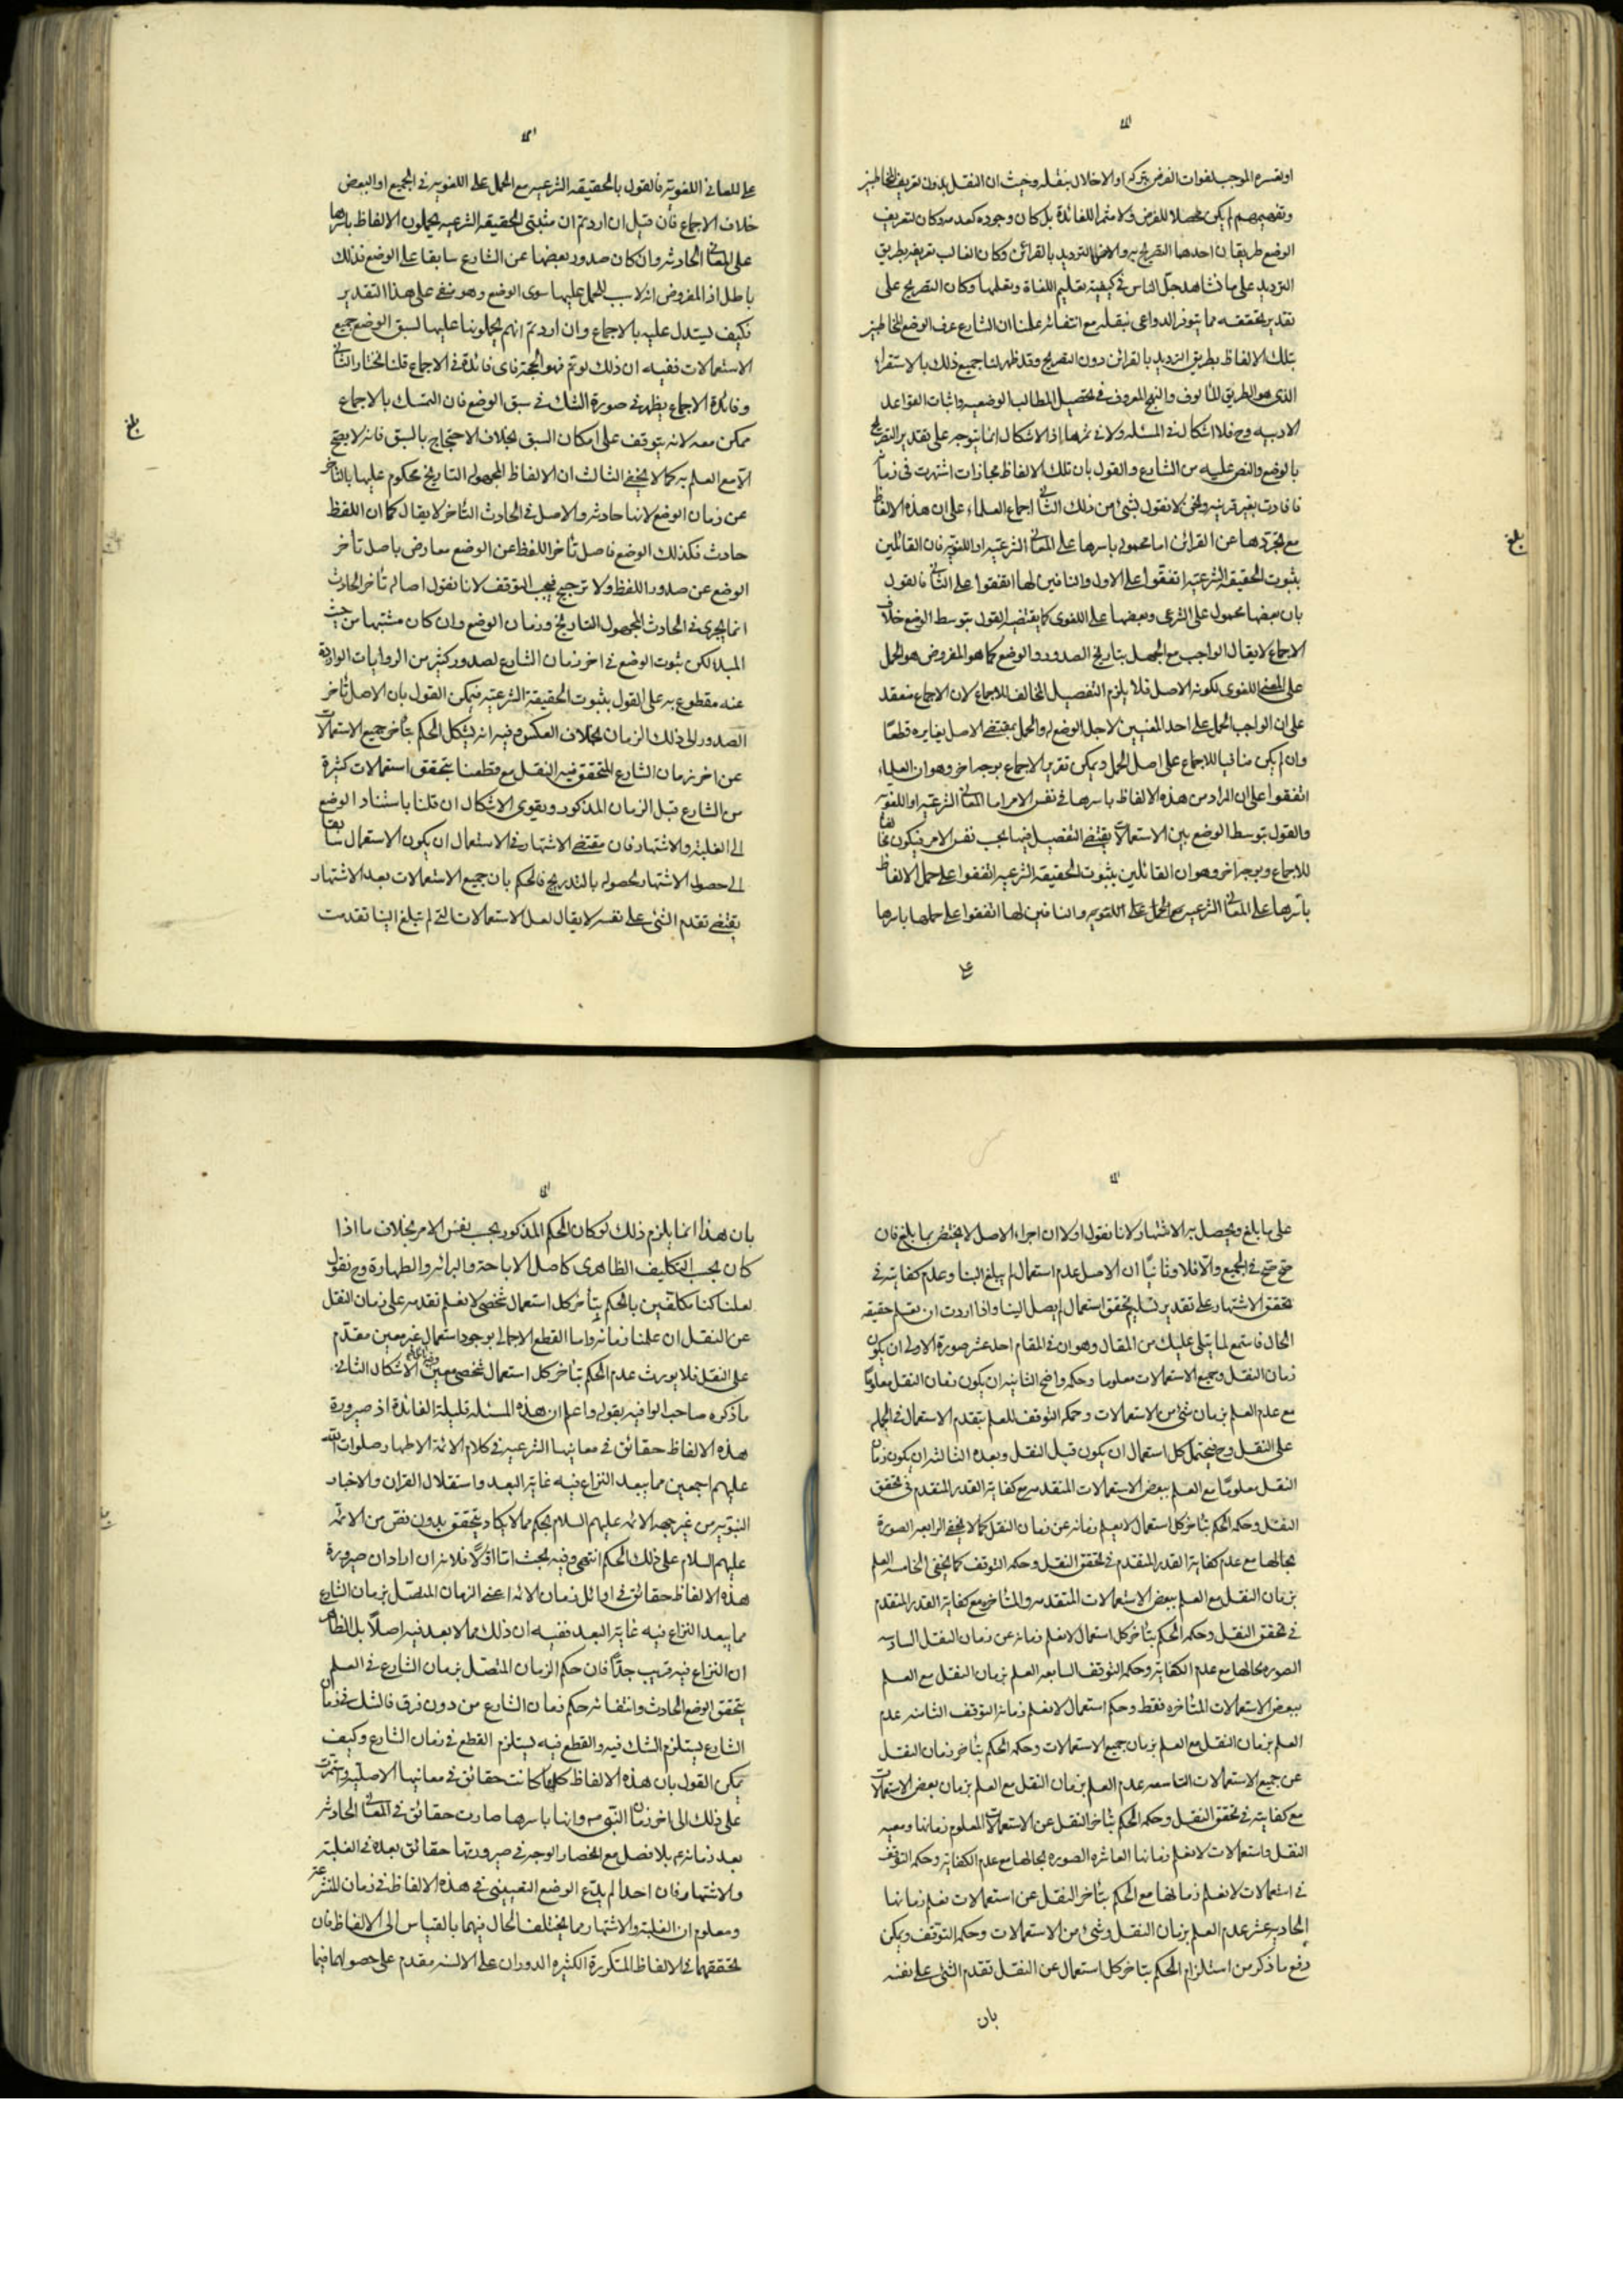 اولغيره الموجب لفوات الغرض بتركه او الاخلال بنقله وحيث ان النقل بدون تعريف المخاطبين
وتفهيمهم لم يكن محصلا للغرض ولا مثمرا للفائدة بل كان وجوده كعدمه وكان لتعريف
الوضع طريقان احدهما التصريح به والاخر الترديد بالقرائن وكان الغالب تعريفه بطريق
الترديد على ما نشاهد جل الناس في كيفية تعليم اللغاة وتعلمها وكان التصريح على
تقدير تحققه مما يتوفر الدواعي بنقله مع انتفائه علمنا ان الشارع عرف الوضع المخاطبين
بتلك الالفاظ بطريق الترديد بالقرائن دون التصريح وقد ظهر لنا جميع ذلك بالاستقراء
الذي هو الطريق المألوف والنهج المعروف في تحصيل المطالب الوضعيه واثبات القواعد
الادبيه وح فلا اشكال في المسئله ولا في ثمرها اذ الاشكال انما يتوجه على تقدير التصريح
بالوضع والنص عليه من الشارع والقول بان تلك الالفاظ مجازات اشتهرت في زمانه
فافادت بغير قرينه ونحن لا نقول بشئ من ذلك الثاني اجماع العلماء على ان هذه الالفاظ
مع تجردها عن القرائن اما محموله باسرها على المعاني الشرعيه او اللغويه فان القائلين
بثبوت الحقيقه الشرعيه اتفقوا على الاول والنافين لها اتفقوا على الثاني فالقول
بان بعضها محمول على الشرعي وبعضها على اللغوي كما يقتضيه القول بتوسط الوضع خلاف
الاجماع لا يقال الواجب مع الجهل بتاريخ الصدور والوضع كما هو المفروض هو الحمل
على المعنى اللغوي لكونه الاصل فلا يلزم التفصيل المخالف للاجماع لان الاجماع منعقد
على ان الواجب الحمل على احد المعنيين لاجل الوضع له والحمل بمقتضى الاصل يغايره قطعا
وان لم يكن منافيا للاجماع على اصل الحمل ويمكن تقرير الاجماع بوجه اخر وهو ان العلماء
اتفقوا على ان المراد من هذه الالفاظ باسرها في نفس الامر اما المعاني الشرعيه او اللغويه
والقول بتوسط الوضع بين الاستعمالات يقتضي التفصيل فيها بحسب نفس الامر فيكون مخالفا
للاجماع وبوجه اخر وهو ان القائلين بثبوت الحقيقه الشرعيه اتفقوا على حمل الالفاظ
باسرها على المعاني الشرعيه مع الحمل على اللغويه والنافين لها اتفقوا على حملها باسرها
بلغ
على المعاني اللغويه فالقول بالحقيقه الشرعيه مع الحمل على اللغويه في الجميع او البعض
خلاف الاجماع فان قيل ان اردتم ان مثبتي الحقيقه الشرعيه يحملون الالفاظ باسرها
على المعاني الحادثه وان كان صدور بعضها عن الشارع سابقا على الوضع فذلك
باطل اذ المفروض انه لا سبب للحمل عليها سوى الوضع وهو منفي على هذا التقدير
فكيف يستدل عليه بالاجماع وان اردتم انهم يحملونها عليها لسبق الوضع جميع
الاستعمالات ففيه ان ذلك لو تم فهو الحجة فاي فائدة في الاجماع قلنا نختار الثاني
وفائدة الاجماع يظهر في صورة الشك في سبق الوضع فان التمسك بالاجماع
ممكن معه لانه يتوقف على امكان السبق بخلاف الاحتجاج بالسبق فانه لا يصح
الا مع العلم به كما لا يخفى الثالث ان الالفاظ المجهوله التاريخ محكوم عليها بالتاخر
عن زمان الوضع لانها حادثه والاصل في الحادث التأخر لا يقال كما ان اللفظ
حادث فكذلك الوضع فاصل تأخر اللفظ عن الوضع معارض باصل تأخر
الوضع عن صدور اللفظ ولا ترجيح فيجب التوقف لانا نقول اصالة تأخر الحادث
انما يجري في الحادث المجهول التاريخ وزمان الوضع وان كان مشتبها من حيث
المبدا لكن ثبوت الوضع في اخر زمان الشارع لصدور كثير من الروايات الواردة
عنه مقطوع به على القول بثبوت الحقيقة الشرعيه فيمكن القول بان الاصل تأخر
الصدور الى ذلك الزمان بخلاف العكس وفيه انه يشكل الحكم بتأخر جميع الاستعمالات
عن اخر زمان الشارع المتحقق فيه النقل مع قطعنا بتحقق استعمالات كثيرة
من الشارع قبل الزمان المذكور ويقوى الاشكال ان قلنا باستناد الوضع
الى الغلبة والاشتهار فان مقتضى الاشتهار في الاستعمال ان يكون الاستعمال سابقا
الى حصول الاشتهار لحصوله بالتدريج فالحكم بان جميع الاستعمالات بعد الاشتهار
يقتضي تقدم الشئ على نفسه لا يقال لعل الاستعمالات التي لم تبلغ الينا تقدمت
بلغ
على ما بلغ ويحصل به الاشتهار لانا نقول اولا ان اجراء الاصل لا يختص بما بلغ فان
صح صح في الجميع والا فلا وثانيا ان الاصل عدم استعمال لم يبلغ الينا وعدم كفايته في
تحقق الاشتهار على تقدير تسليم تحقق استعمال لم يصل الينا واذا اردت ان تعلم حقيقه
الحال فاستمع لما يتلى عليك من المقال وهو ان في المقام احد عشر صورة الاولى ان يكون
زمان النقل وجميع الاستعمالات معلوما وحكمه واضح الثانيه ان يكون زمان النقل معلوما
مع عدم العلم بزمان شئ من الاستعمالات وحكمه التوقف للعلم بتقدم الاستعمال في الجمله
على النقل وح فيحتمل كل استعمال ان يكون قبل النقل وبعده الثالثه ان يكون زمان
النقل معلوما مع العلم ببعض الاستعمالات المتقدمه مع كفاية القدر المتقدم في تحقق
النقل وحكمه الحكم بتأخر كل استعمال لا يعلم زمانه عن زمان النقل كما لا يخفى الرابعه الصورة
بحالها مع عدم كفاية القدر المتقدم في تحقق النقل وحكمه التوقف كما يخفى الخامسه العلم
بزمان النقل مع العلم ببعض الاستعمالات المتقدمه والمتأخره مع كفاية القدر المتقدم
في تحقق النقل وحكمه الحكم بتأخر كل استعمال لا نعلم زمانه عن زمان النقل السادسه
الصوره بحالها مع عدم الكفاية وحكمه التوقف السابعه العلم بزمان النقل مع العلم
ببعض الاستعمالات المتأخره فقط وحكم استعمال لا نعلم زمانه التوقف الثامنه عدم
العلم بزمان النقل مع العلم بزمان جميع الاستعمالات وحكمه الحكم بتأخر زمان النقل
عن جميع الاستعمالات التاسعه عدم العلم بزمان النقل مع العلم بزمان بعض الاستعمالات
مع كفايته في تحقق النقل وحكمه الحكم بتأخر النقل عن الاستعمالات المعلوم زمانها ومعيه
النقل واستعمالات لا نعلم زمانها العاشره الصوره بحالها مع عدم الكفاية وحكمه التوقف
في استعمالات لا نعلم زمانها مع الحكم بتأخر النقل عن استعمالات نعلم زمانها
الحادية عشر عدم العلم بزمان النقل وشئ من الاستعمالات وحكمه التوقف ويمكن
دفع ما ذكر من استلزام الحكم بتاخر كل استعمال عن النقل تقدم الشئ على نفسه
بان
بان هذا انما يلزم ذلك لو كان الحكم المذكور بحسب نفس الامر بخلاف ما اذا
كان بحسب التكليف الظاهري كاصل الاباحة والبرائه والطهارة وح نقول
لعلنا كنا مكلفين بالحكم بتأخر كل استعمال شخصي لا نعلم تقدمه على زمان النقل
عن النقل ان علمنا زمانه واما القطع الاجمالي بوجود استعمال غير معين مقدم
على النقل فلا يورث عدم الحكم بتاخر كل استعمال شخصي معين الاشكال الثاني
ما ذكره صاحب الوافيه بقوله واعلم ان هذه المسئله قليلة الفائدة اذ صيرورة
هذه الالفاظ حقائق في معانيها الشرعيه في كلام الائمة الاطهار صلوات الله
عليهم اجمعين مما يبعد النزاع فيه غاية البعد واستقلال القران والاخبار
النبويه من غير جهة الائمه عليهم السلام بحكم مما لا يكاد يتحقق بدون نص من الائمه
عليهم السلام على ذلك الحكم انتهى وفيه بحث اما اولا فلانه ان اراد ان صيرورة
هذه الالفاظ حقائق في اوائل زمان الائمه اعني الزمان المتصل بزمان الشارع
مما يبعد النزاع فيه غاية البعد ففيه ان ذلك مما لا بعد فيه اصلا بل الظاهر
ان النزاع فيه قريب جدا فان حكم الزمان المتصل بزمان الشارع في العلم
بتحقق الوضع الحادث وانتفائه حكم زمان الشارع من دون فرق فالشك في زمان
الشارع يستلزم الشك فيه والقطع فيه يستلزم القطع في زمان الشارع وكيف
يمكن القول بان هذه الالفاظ كلها كانت حقائق في معانيها الاصليه واستمرت
على ذلك الى اخر زمان النبي ص وانها باسرها صارت حقائق في المعاني الحادثه
بعد زمانه بلا فصل مع انحصار الوجه في صيرورتها حقائق بعده في الغلبة
والاشتهار فان احدا لم يدع الوضع التعييني في هذه الالفاظ في زمان المتشرعه
ومعلوم ان الغلبة والاشتهار مما يختلف الحال فيهما بالقياس الى الالفاظ فان
تحققهما في الالفاظ المتكررة الكثيره الدوران على الالسنه مقدم على حصولهما فيما